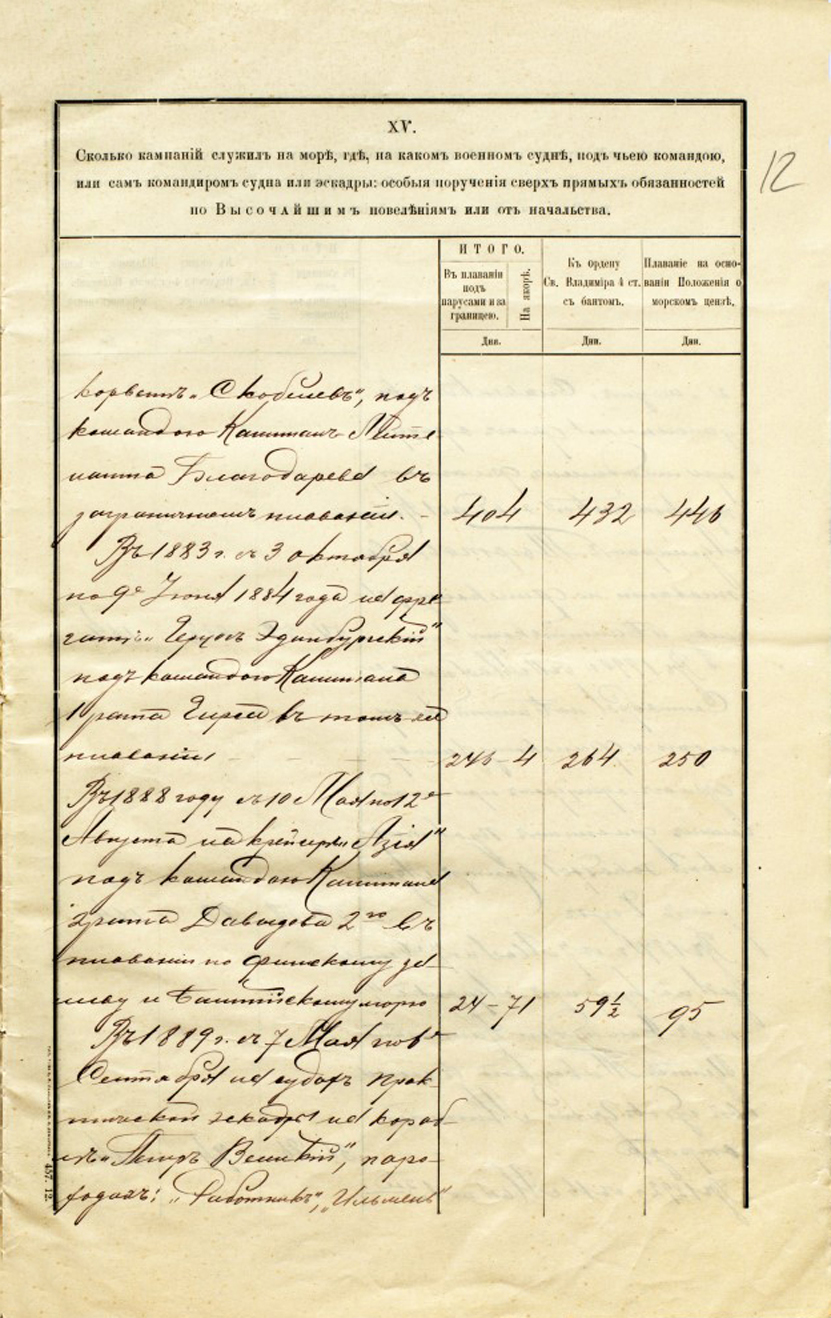 XV.
Сколько кампаній служилъ на морѣ, гдѣ, на какомъ военномъ суднѣ, подъ чьею командою,
или самъ командиромъ судна или эскадры: особыя порученія сверхъ прямыхъ обязанностей
по Высочайшимъ повелѣніямъ или отъ начальства.
12
ИТОГО.
Въ плаваніи подъ парусами и за границею.
На якорѣ.
Къ ордену Св. Владиміра 4 ст. съ бантомъ.
Плаваніе на основаніи Положенія о морскомъ цензѣ.
Дня.
Дни.
Дни.
корветѣ „Скобелевъ“, подъ
командою Капитанъ Лейте
нанта Благодарева въ
заграничномъ плаваніи. 404 432 446
Въ 1883 г. съ 3 октября
по 9е Іюня 1884 года на фре
гатѣ „Герцогъ Эдинбургскій“
подъ командою Капитана
1 ранга Гирса въ томъ же
плаваніи 246 4 264 250
Въ 1888 году съ 10 Мая по 12е
Августа на крейсерѣ „Азія“
подъ командою Капитана
2 ранга Давыдова 2го въ
плаваніи по Финскому за
ливу и Балтійскому морю 24-71 59 1/2 95
Въ 1889 г. съ 7 Мая по 6е
Сентября на судахъ прак
тической эскадры на кораб
лѣ „Петръ Великій“, паро-
ходахъ: „Работникъ“, „Ильмень“
457. 12.